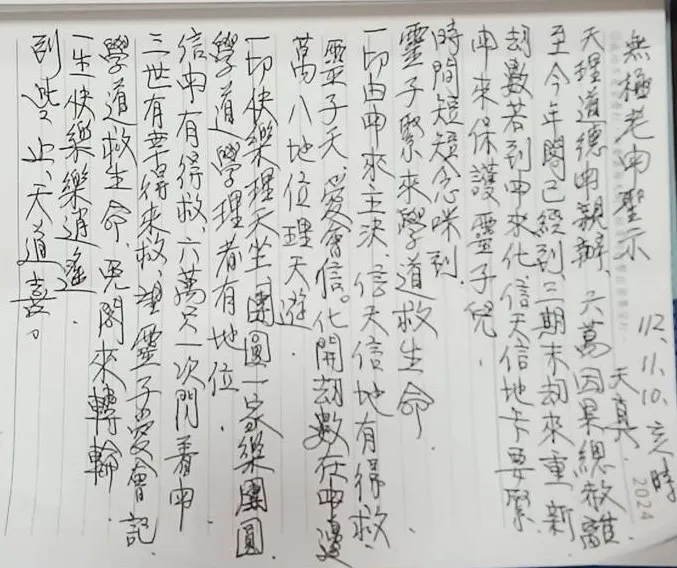 112.11.10.亥時
天真
無極老申聖示
天理道德申親辦、六萬因果總赦離
至今年關已經到、三期末劫來重新
劫數若到申來化、信天信地卡要緊
申來保護靈子兒.
時間短短念咪到.
靈子緊來學道救生命.
一切由申來主決、信天信地有得救.
靈子天 愛會信。化開劫數在申邊
萬八地位理天遊.
一切快樂理天坐、團圓一家樂團圓.
學道學理者有地位.
信申有得救、六萬只一次問着申
三世有幸得來救、 靈子愛會記.
學道救生命、免閻來轉輪
一生快樂樂逍遙.
到 止、天道喜。
2024